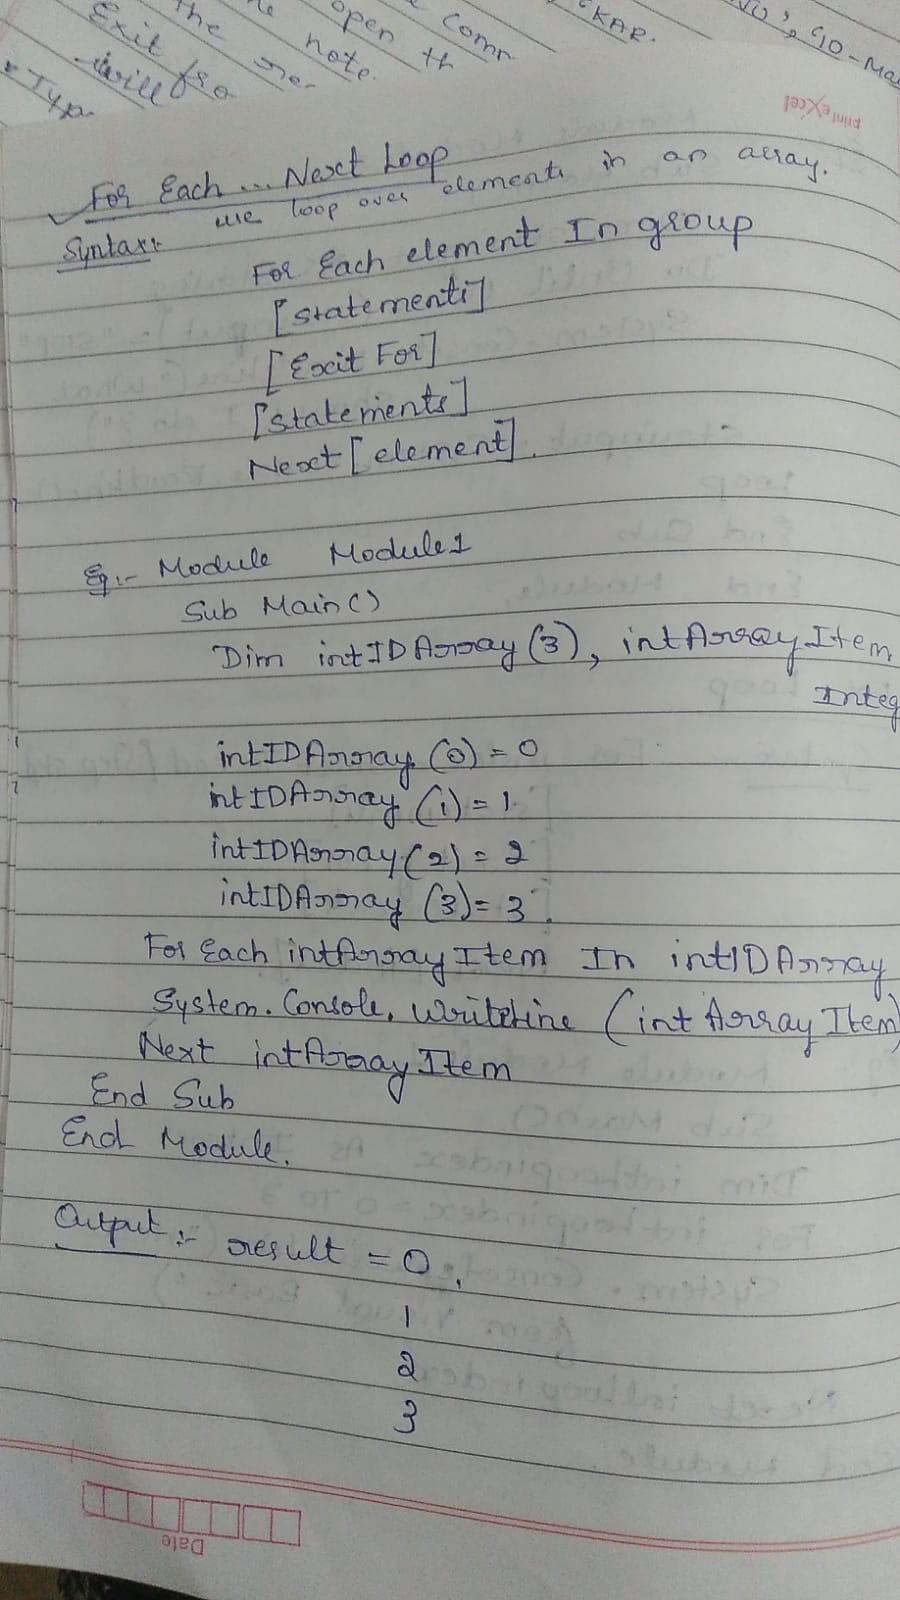 the
open th
comm
CKAR.
Exit fro
the
note.
will
Typ
printexcel
For Each ... Next Loop
Syntax:- we loop over elements in an array.
For Each element In group
[statements]
[Exit For]
[statements]
Next [element].
Eg:- Module Module1
Sub Main()
Dim intIDArray(3), intArrayItem
Integ
intIDArray(0) = 0
intIDArray(1) = 1
intIDArray(2) = 2
intIDArray(3) = 3.
For Each intArrayItem In intIDArray
System.Console.WriteLine (intArrayItem)
Next intArrayItem
End Sub
End Module.
Output :- result = 0.
1
2
3
Date